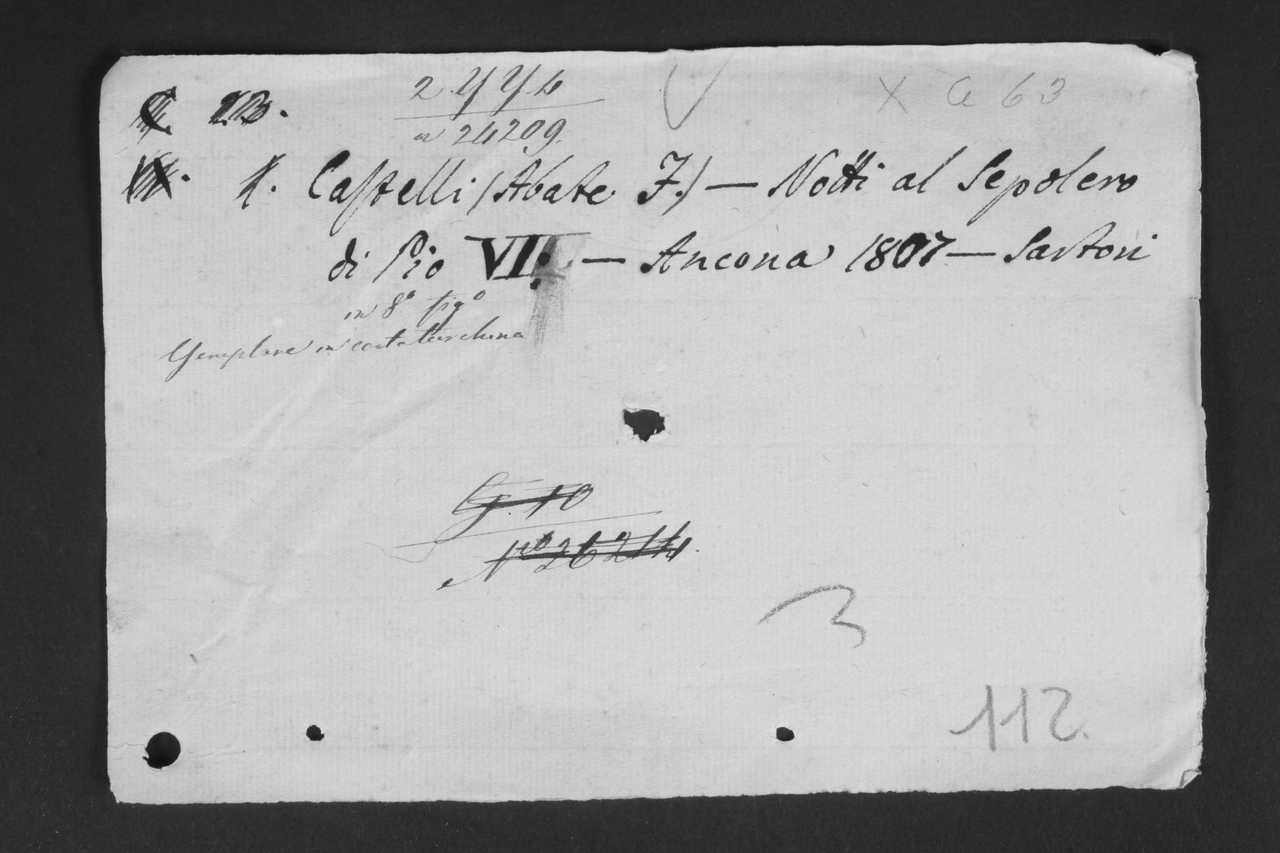 2.774
n 24209.
X G 63
1. Castelli (Abate F.) — Notti al Sepolcro
di Pio VII. — Ancona 1807 — Sartori
in 8° fig°
Esemplare in carta turchina
G. 10
N° 26214.
3
112.